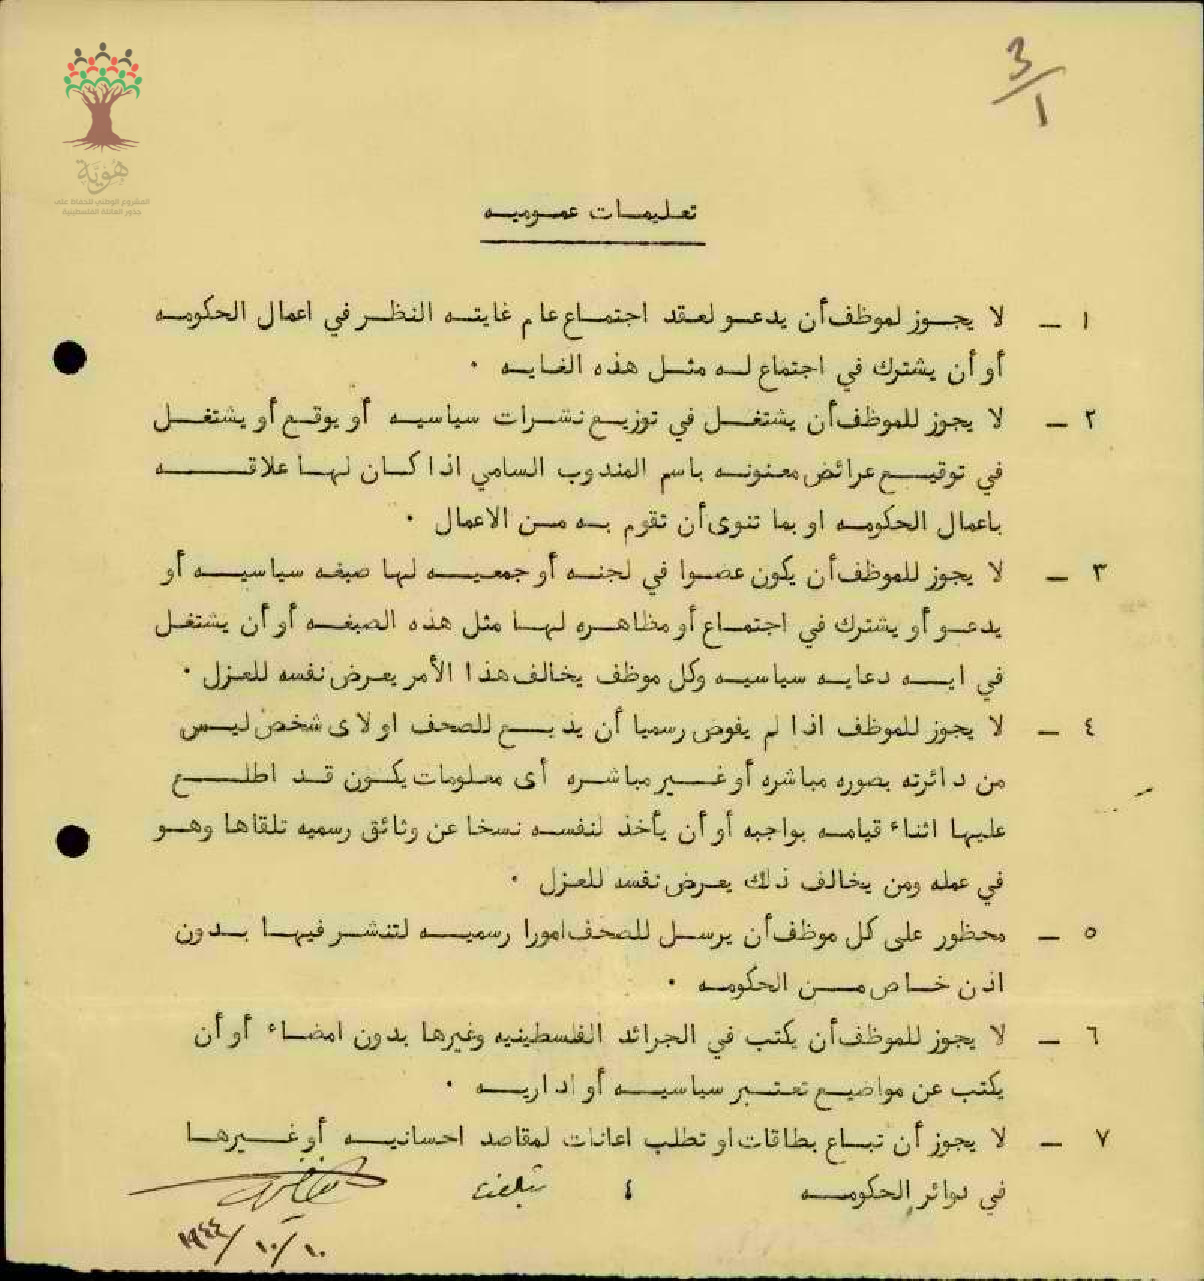 3/1
هُوِيَّة
المشروع الوطني للحفاظ على
جذور العائلة الفلسطينية
تعليمات عموميه
١ - لا يجوز لموظف أن يدعو لعقد اجتماع عام غايته النظر في اعمال الحكومه
أو أن يشترك في اجتماع له مثل هذه الغايه .
٢ - لا يجوز للموظف أن يشتغل في توزيع نشرات سياسيه أو يوقع أو يشتغل
في توقيع عرائض معنونه باسم المندوب السامي اذا كان لها علاقه
باعمال الحكومه او بما تنوى أن تقوم به من الاعمال .
٣ - لا يجوز للموظف أن يكون عضوا في لجنه أو جمعيه لها صبغه سياسيه أو
يدعو أو يشترك في اجتماع أو مظاهره لها مثل هذه الصبغه أو أن يشتغل
في ايه دعايه سياسيه وكل موظف يخالف هذا الأمر يعرض نفسه للعزل .
٤ - لا يجوز للموظف اذا لم يفوض رسميا أن يذيع للصحف او لاى شخص ليس
من دائرته بصوره مباشره أو غير مباشره أى معلومات يكون قد اطلع
عليها اثناء قيامه بواجبه أو أن يأخذ لنفسه نسخا عن وثائق رسميه تلقاها وهو
في عمله ومن يخالف ذلك يعرض نفسه للعزل .
٥ - محظور على كل موظف أن يرسل للصحف امورا رسميه لتنشر فيها بدون
اذن خاص من الحكومه .
٦ - لا يجوز للموظف أن يكتب في الجرائد الفلسطينيه وغيرها بدون امضاء أو أن
يكتب عن مواضيع تعتبر سياسيه أو اداريه .
٧ - لا يجوز أن تباع بطاقات او تطلب اعانات لمقاصد احسانيه أو غيرها
في دوائر الحكومه ٤ تبلغت
١٠/١٠/١٩٤٤